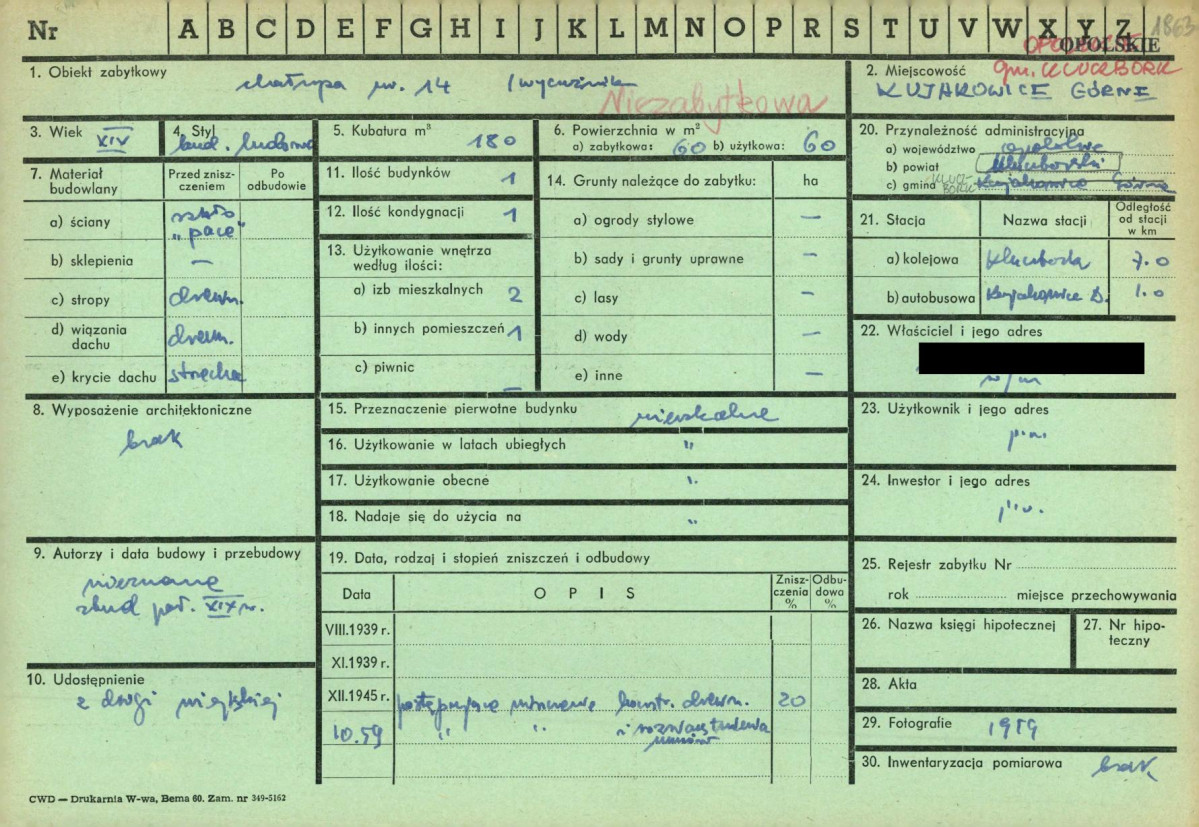 Nr A B C D E F G H I J K L M N O P R S T U V W X Y Z 1863
OPOLSKIE
1. Obiekt zabytkowy
chałupa nr. 14 /wycużnik
Niezabytkowa
2. Miejscowość
gm. KLUCZBORK
KUJAKOWICE GÓRNE
3. Wiek XIX
4. Styl
bud. ludowe
5. Kubatura m³
180
6. Powierzchnia w m²
a) zabytkowa: 60 b) użytkowa: 60
20. Przynależność administracyjna
a) województwo opolskie
b) powiat kluczborski
c) gmina KLUCZBORK Kujakowice Górne
7. Materiał budowlany
Przed zniszczeniem
Po odbudowie
a) ściany
szkło „pace"
b) sklepienia —
c) stropy drewn.
d) wiązania dachu drewn.
e) krycie dachu strzecha
11. Ilość budynków 1
12. Ilość kondygnacji 1
13. Użytkowanie wnętrza według ilości:
a) izb mieszkalnych 2
b) innych pomieszczeń 1
c) piwnic —
14. Grunty należące do zabytku: ha
a) ogrody stylowe —
b) sady i grunty uprawne —
c) lasy —
d) wody —
e) inne —
21. Stacja Nazwa stacji Odległość od stacji w km
a) kolejowa Kluczbork 7.0
b) autobusowa Kujakowice D. 1.0
22. Właściciel i jego adres
w/m
8. Wyposażenie architektoniczne
brak
15. Przeznaczenie pierwotne budynku mieszkalne
16. Użytkowanie w latach ubiegłych "
17. Użytkowanie obecne "
18. Nadaje się do użycia na "
23. Użytkownik i jego adres
j.w.
24. Inwestor i jego adres
j.w.
9. Autorzy i data budowy i przebudowy
nieznane
zbud poł. XIX w.
19. Data, rodzaj i stopień zniszczeń i odbudowy
Data OPIS Zniszczenia % Odbudowa %
VIII.1939 r.
XI.1939 r.
XII.1945 r. postępujące niszczenie konstr. drewn. 20
10.59 " " i rozwarstwienia murów
25. Rejestr zabytku Nr
rok miejsce przechowywania
26. Nazwa księgi hipotecznej
27. Nr hipoteczny
10. Udostępnienie
z drogi wiejskiej
28. Akta
29. Fotografie 1959
30. Inwentaryzacja pomiarowa brak
CWD — Drukarnia W-wa, Bema 60. Zam. nr 349-5162